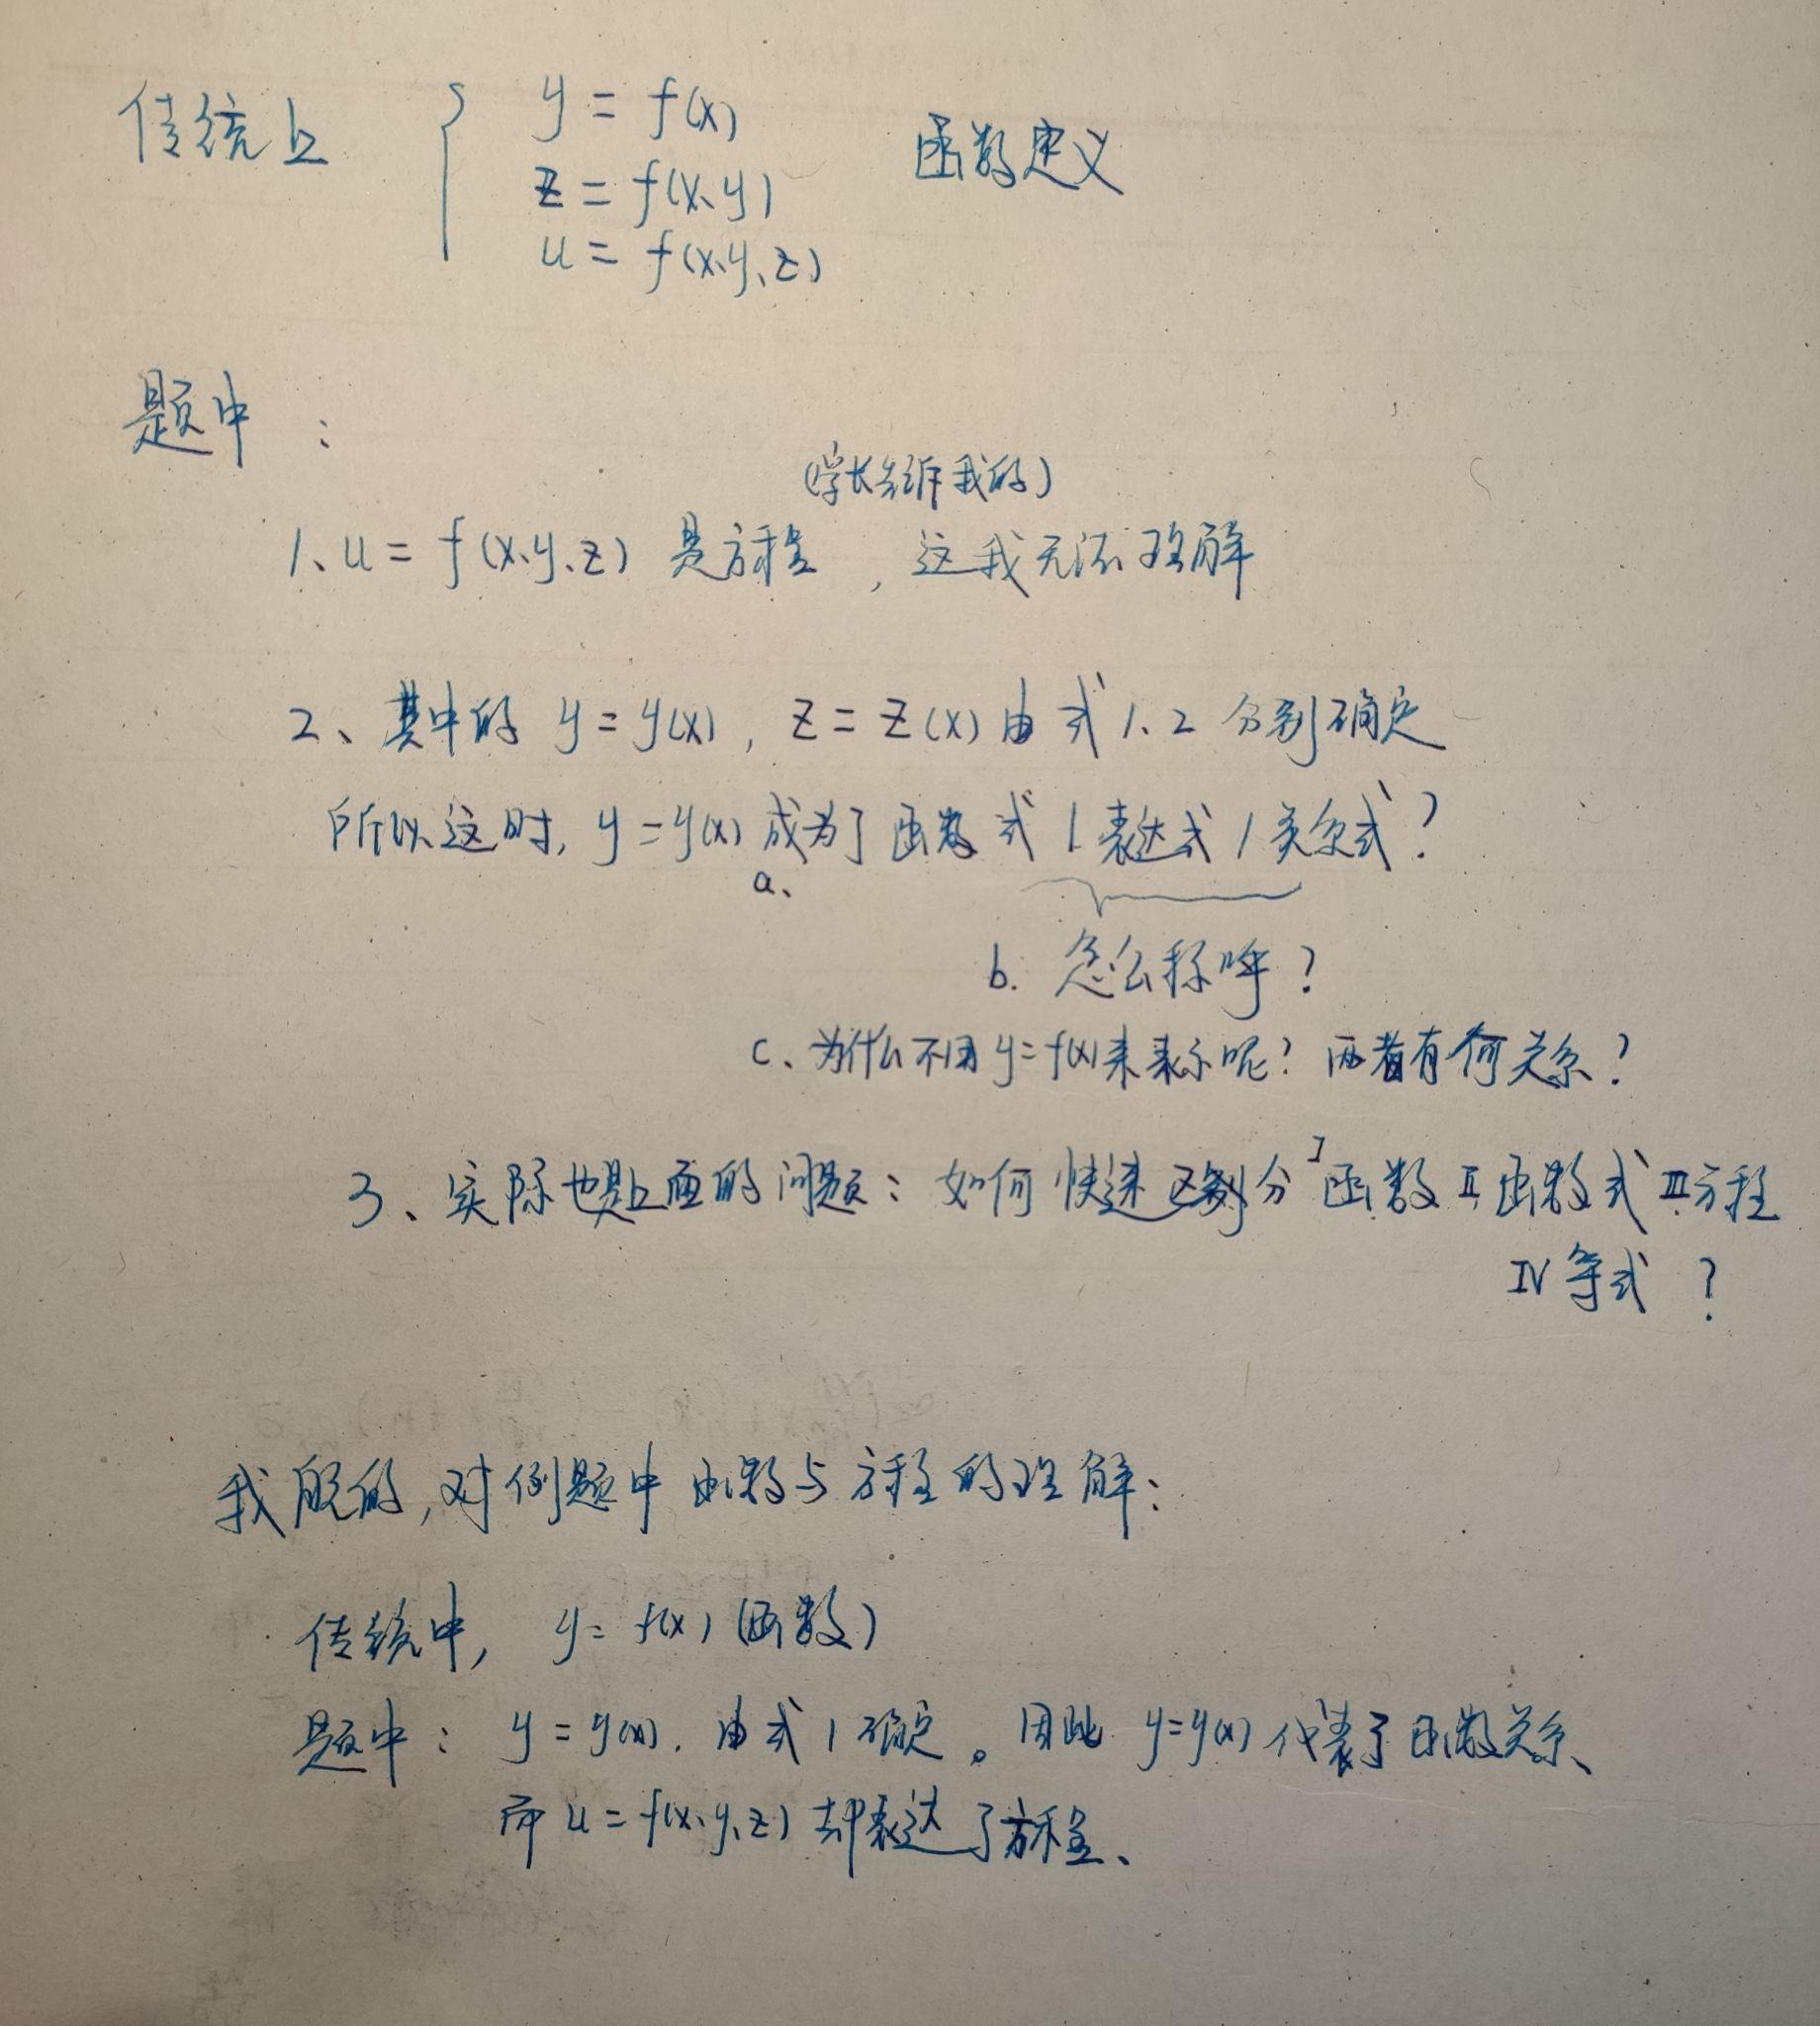 传统上 { y = f(x) 函数定义
z = f(x、y)
u = f(x、y、z)
题中：
(学长告诉我的)
1、u = f(x、y、z) 是方程，这我无法理解
2、其中的 y = y(x)，z = z(x) 由式1、2 分别确定
所以这时，y = y(x) 成为了函数式 / 表达式 / 关系式？
a、
b. 怎么称呼？
c、为什么不用 y = f(x) 来表示呢？两者有何关系？
3、实际也是上面的问题：如何快速区别分 I 函数 II 函数式 III 方程
IV 等式？
我的，对例题中函数与方程的理解：
传统中，y = f(x) (函数)
题中：y = y(x)，由式1确定。因此 y = y(x) 代表了函数关系、
而 u = f(x、y、z) 却表达了方程、